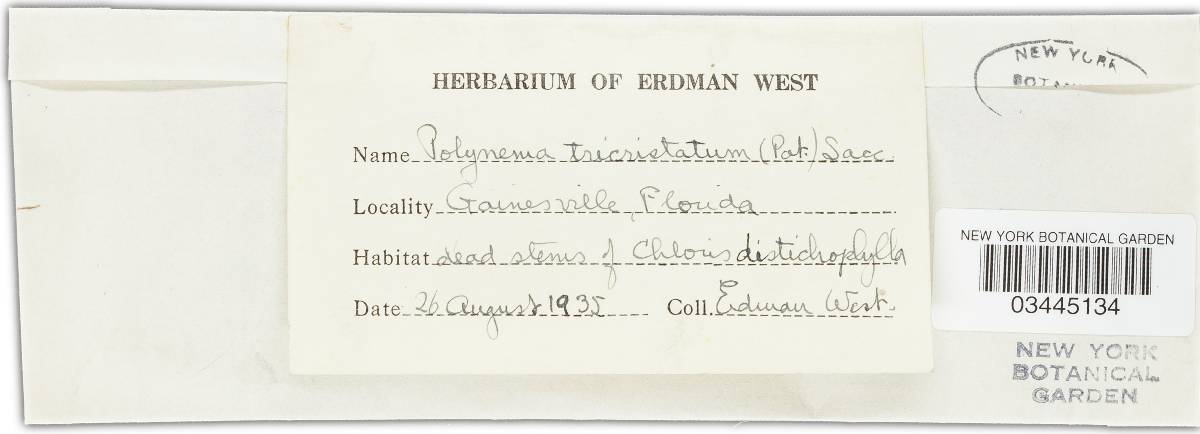 HERBARIUM OF ERDMAN WEST
Name Polynema tricristatum (Pat.) Sacc.
Locality Gainesville, Florida
Habitat dead stems of Chloris distichophylla
Date 26 August 1935 Coll. Erdman West.
NEW YORK
NEW YORK BOTANICAL GARDEN
03445134
NEW YORK
BOTANICAL
GARDEN